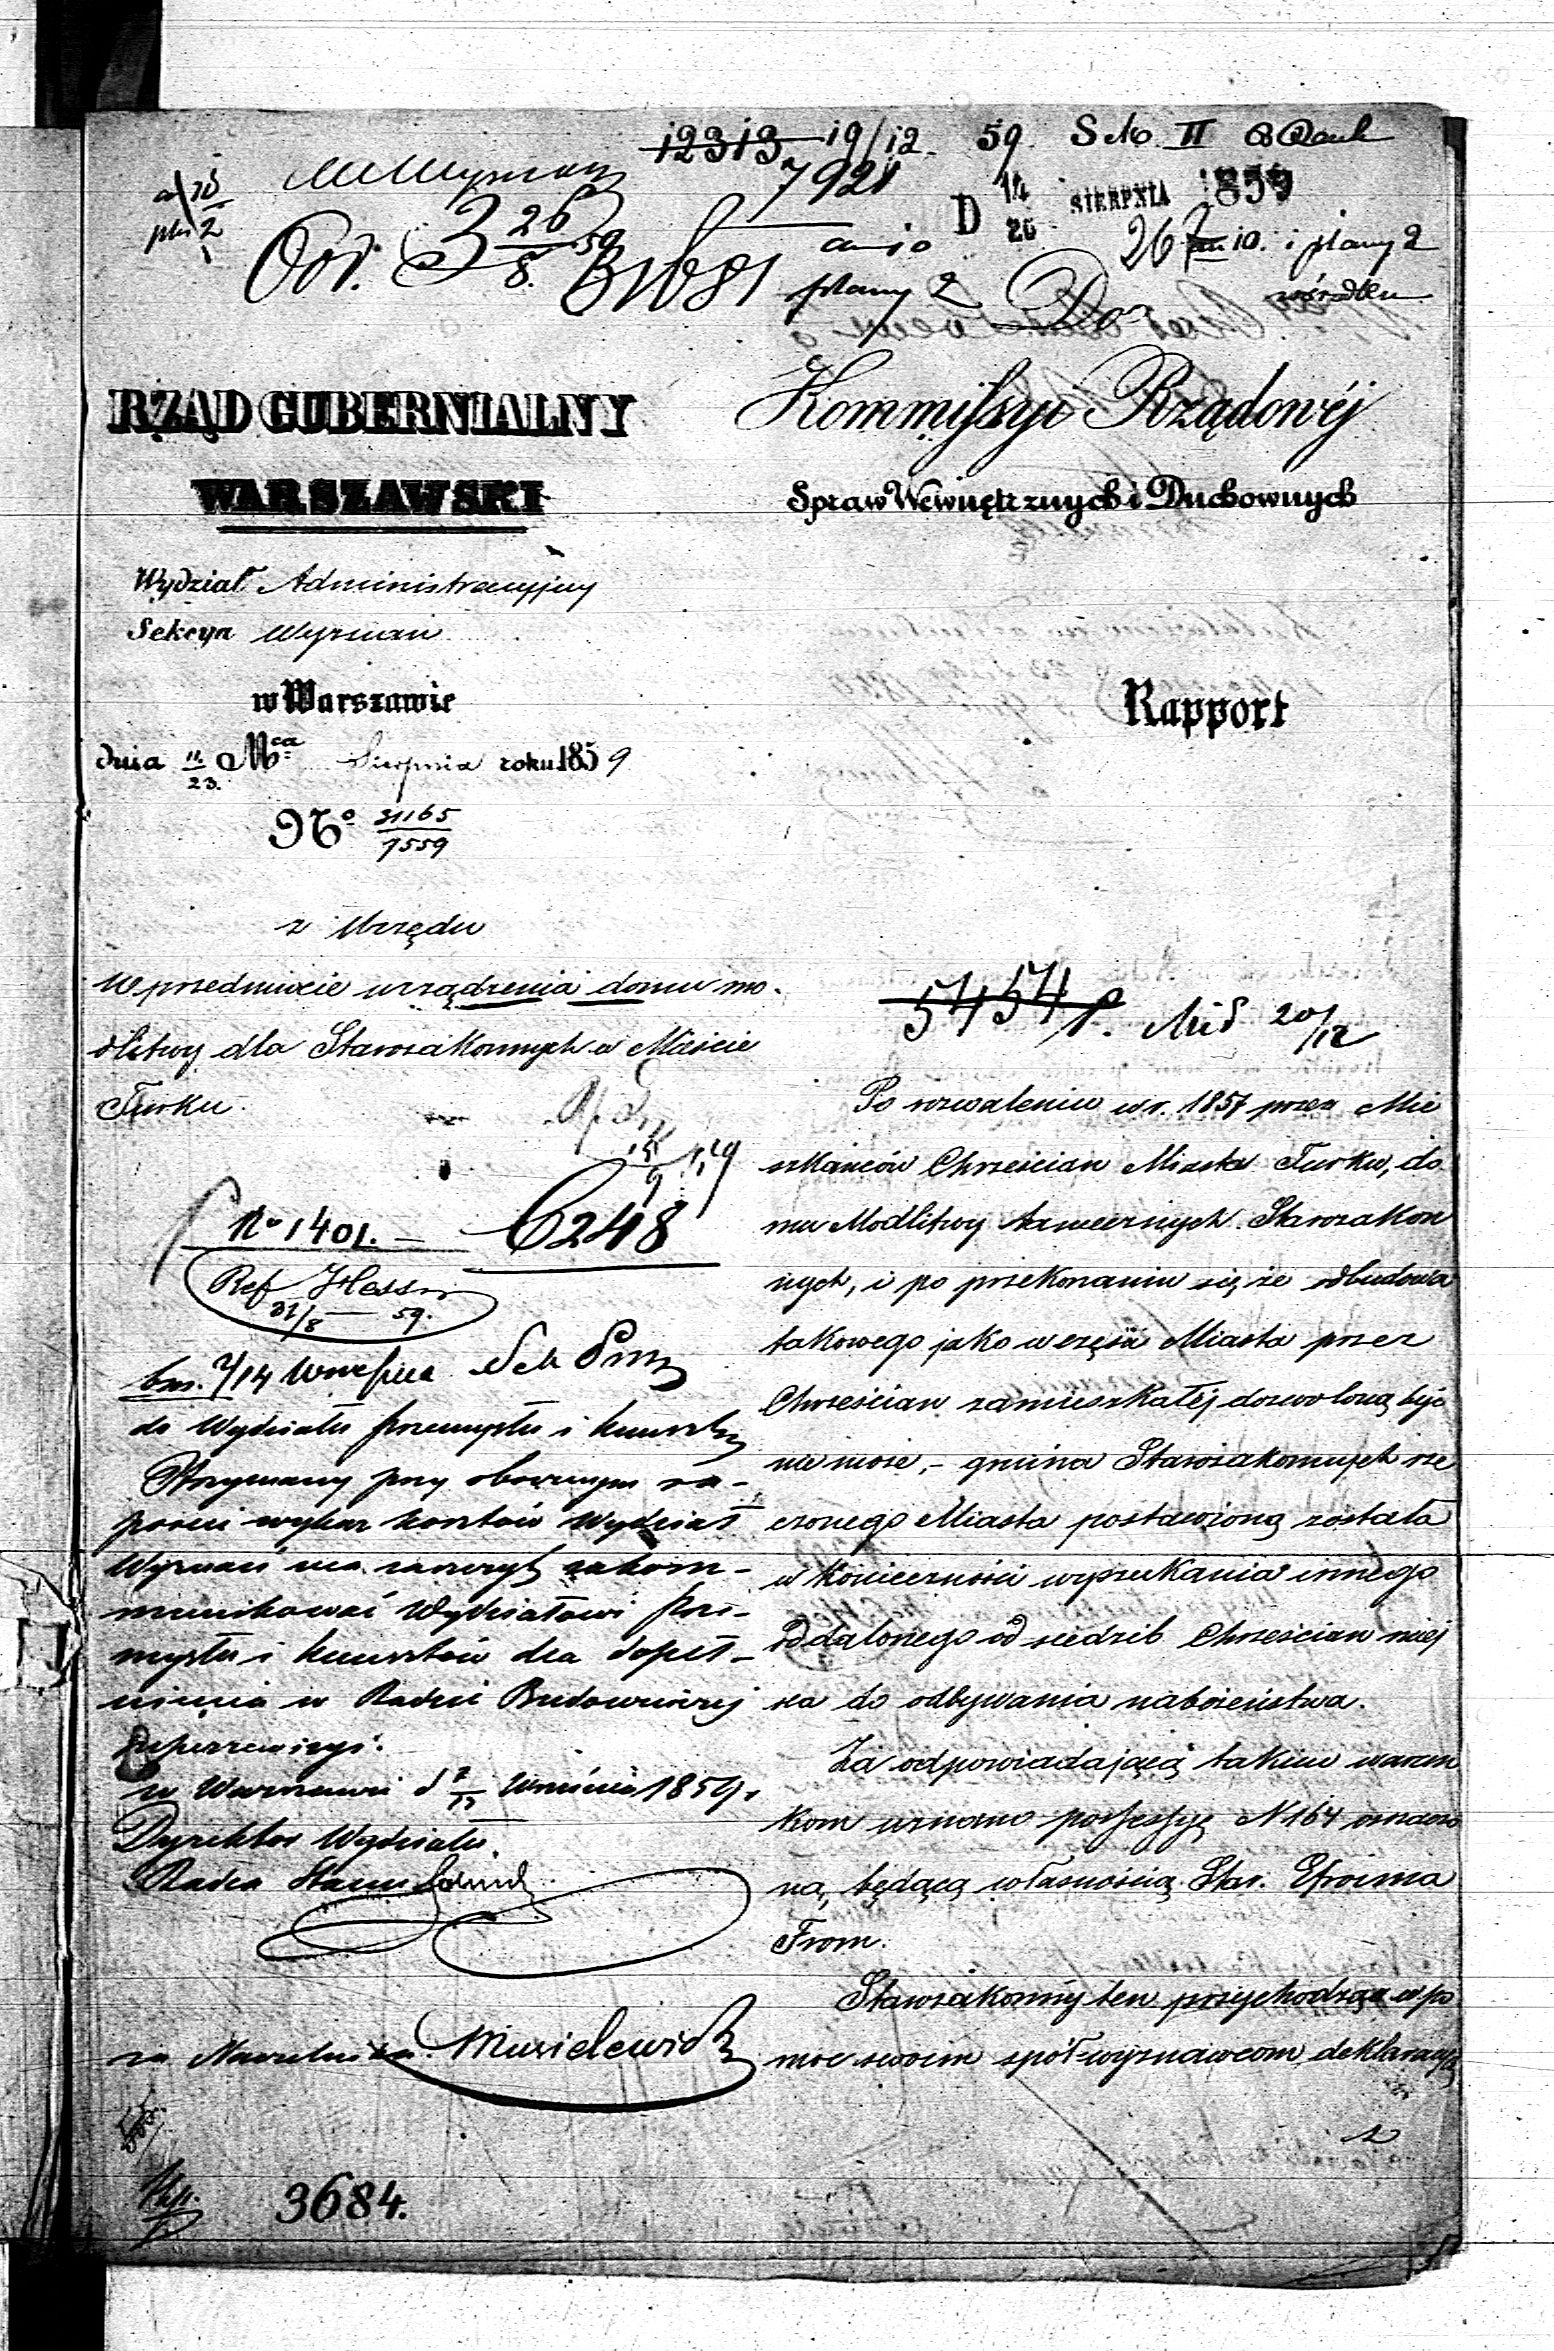 12313 19/12 59. S M. II
7921
D 14/26 SIERPNIA 1859
an 10
26 an 10. i plany 2
plany 2
Do
RZĄD GUBERNIALNY
WARSZAWSKI
Kommissyi Rządowéj
Spraw Wewnętrznych i Duchownych
Wydział Administracyjny
Sekcya Wyznań
w Warszawie
Rapport
dnia 11/23. Mca Sierpnia roku 1859
No 31165/7559
z Urzędu
W przedmiocie urządzenia domu mo-
dlitwy dla Starozakonnych w Mieście
Turku.
5454
20/12
No 1401. — 6248
Ref Hessen
31/8 — 59.
do Wydziału Przemysłu i Kunsztów
Otrzymany przy obecnym ra-
porcie wykaz kosztów Wydział
Wyznań ma zaszczyt zakom-
munikować Wydziałowi Prze-
mysłu i Kunsztów dla dopeł-
nienia w Radzie Budowniczej
superrewizyi.
w Warszawie d Września 1859.
Dyrektor Wydziału
Radca Stanu
za Naczelnika
3684.
Po rozwaleniu w r. 1857 przez Mie
szkańców Chrześcian Miasta Turku, do
mu Modlitwy tamecznych Starozakon
nych, i po przekonaniu się, że odbudowa
takowego jako w części Miasta przez
Chrześcian zamieszkałéj dozwoloną być
nie może, – gmina Starozakonnych rze
czonego Miasta postawioną została
w konieczności wyszukania innego
oddalonego od siedzib Chrześcian miej
sca do odbywania nabożeństwa.
Za odpowiadającą takim warun
kom uznano possessyę N 164 oznaczo
ną, będącą własnością Star. Efroima
From.
Starozakonny ten przychodząc w po
moc swoim spół-wyznawcom, deklaracyą
2